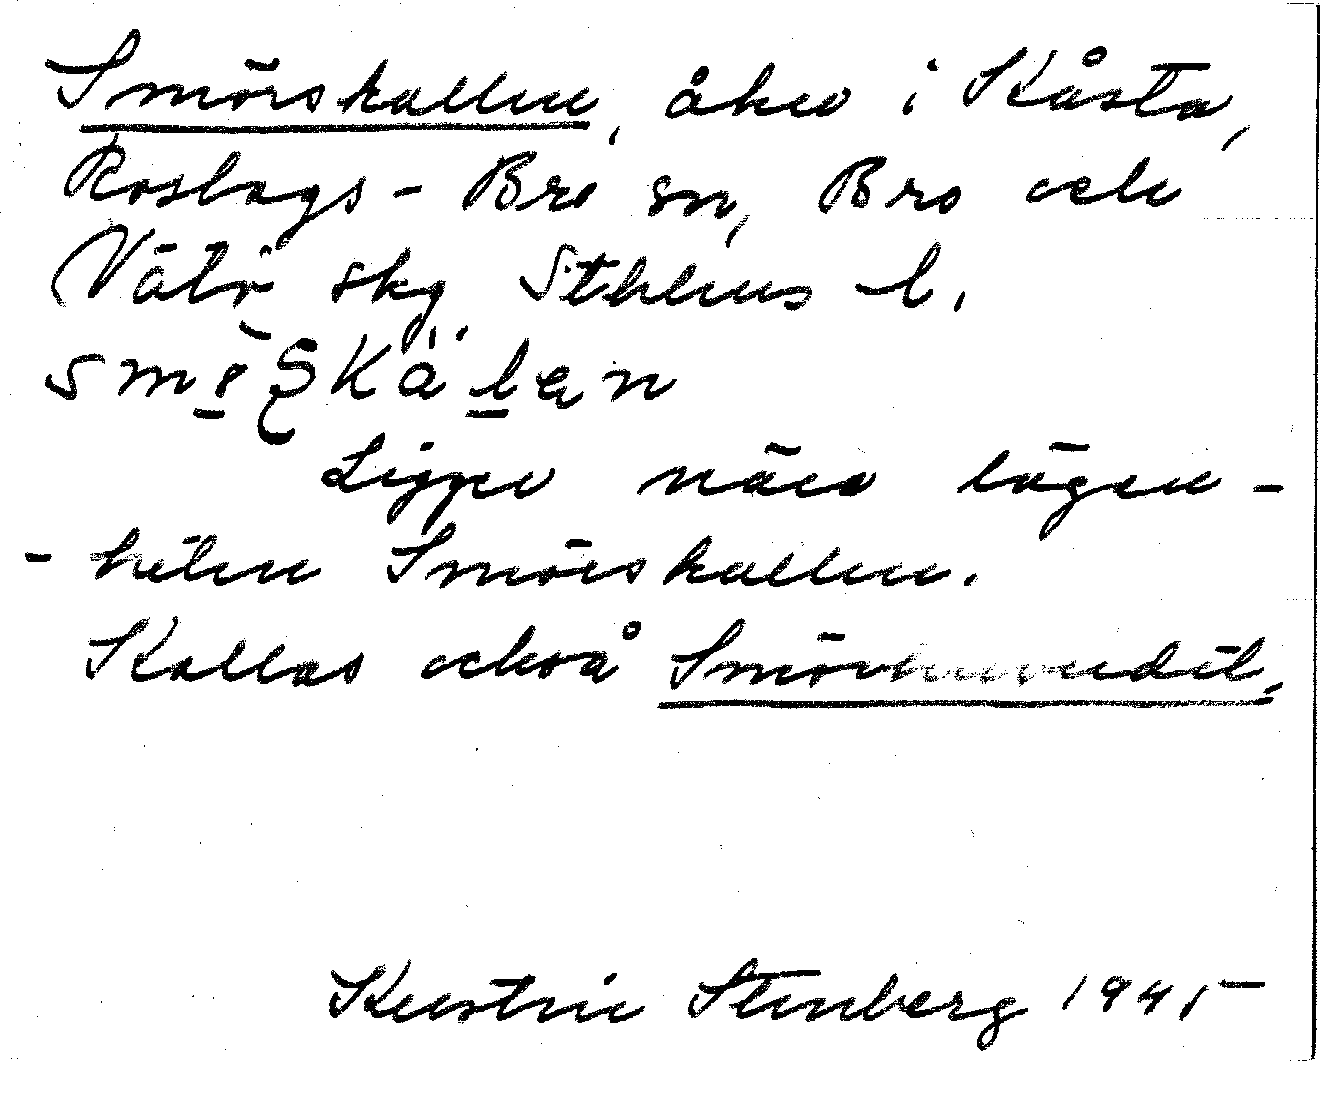 Smörskallen, åker i Kåsta,
Roslags-Bro sn, Bro och
Vätö skg Sthlms l.
Ligger nära lägen-
-heten Smörskallen.
Kallas också
Kerstin Stenberg 1945